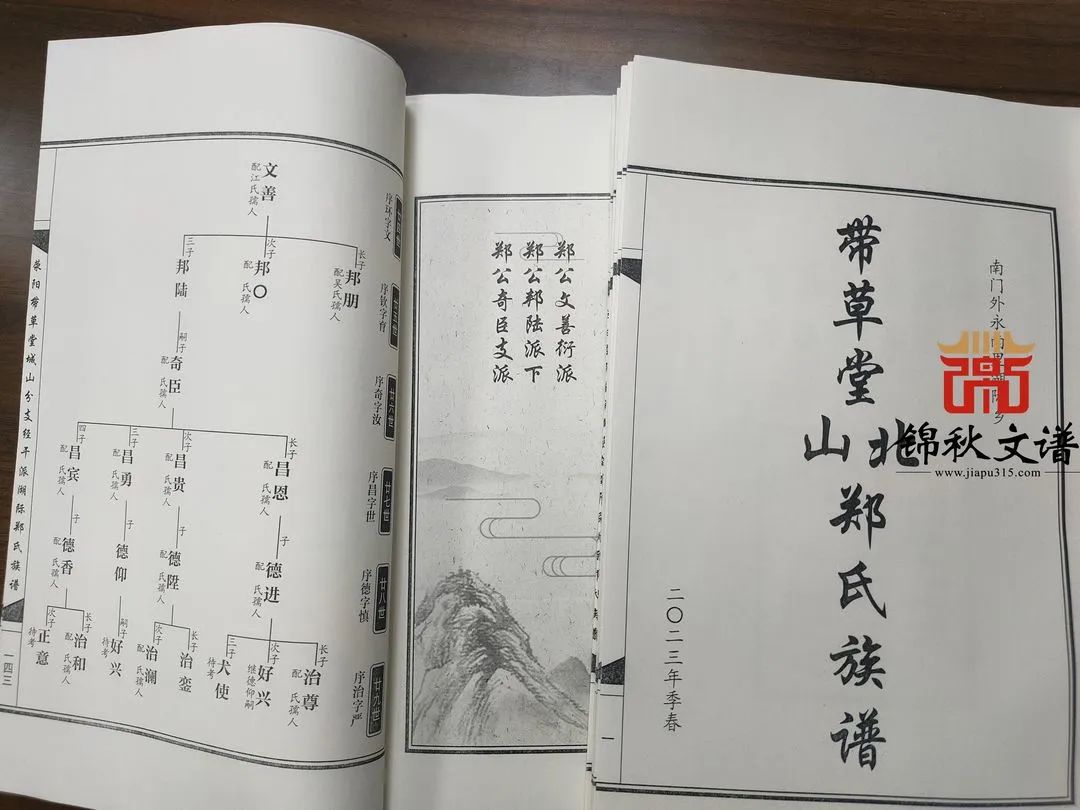 南门外永向里湖际乡
带草堂
山北
郑氏族谱
二〇二三年季春
一
锦秋文谱
www.jiapu315.com
郑公文善衍派
郑公邦陆派下
郑公奇臣支派
廿四世
序环字文
廿五世
序钦字育
廿六世
序奇字汝
廿七世
序昌字世
廿八世
序德字慎
廿九世
序治字严
文善
配江氏孺人
长子
邦朋
配吴氏孺人
次子
邦〇
配 氏孺人
三子
邦陆
嗣子
奇臣
配 氏孺人
长子
昌恩
配 氏孺人
次子
昌贵
配 氏孺人
三子
昌勇
配 氏孺人
四子
昌宾
配 氏孺人
子
德进
配 氏孺人
子
德陞
配 氏孺人
子
德仰
子
德香
配 氏孺人
长子
治尊
配 氏孺人
次子
好兴
继德仰嗣
三子
犬使
待考
长子
治銮
次子
治澜
配 氏孺人
嗣子
好兴
待考
长子
治和
配 氏孺人
次子
正意
待考
荥阳带草堂城山分支经干派湖际郑氏族谱
一四三